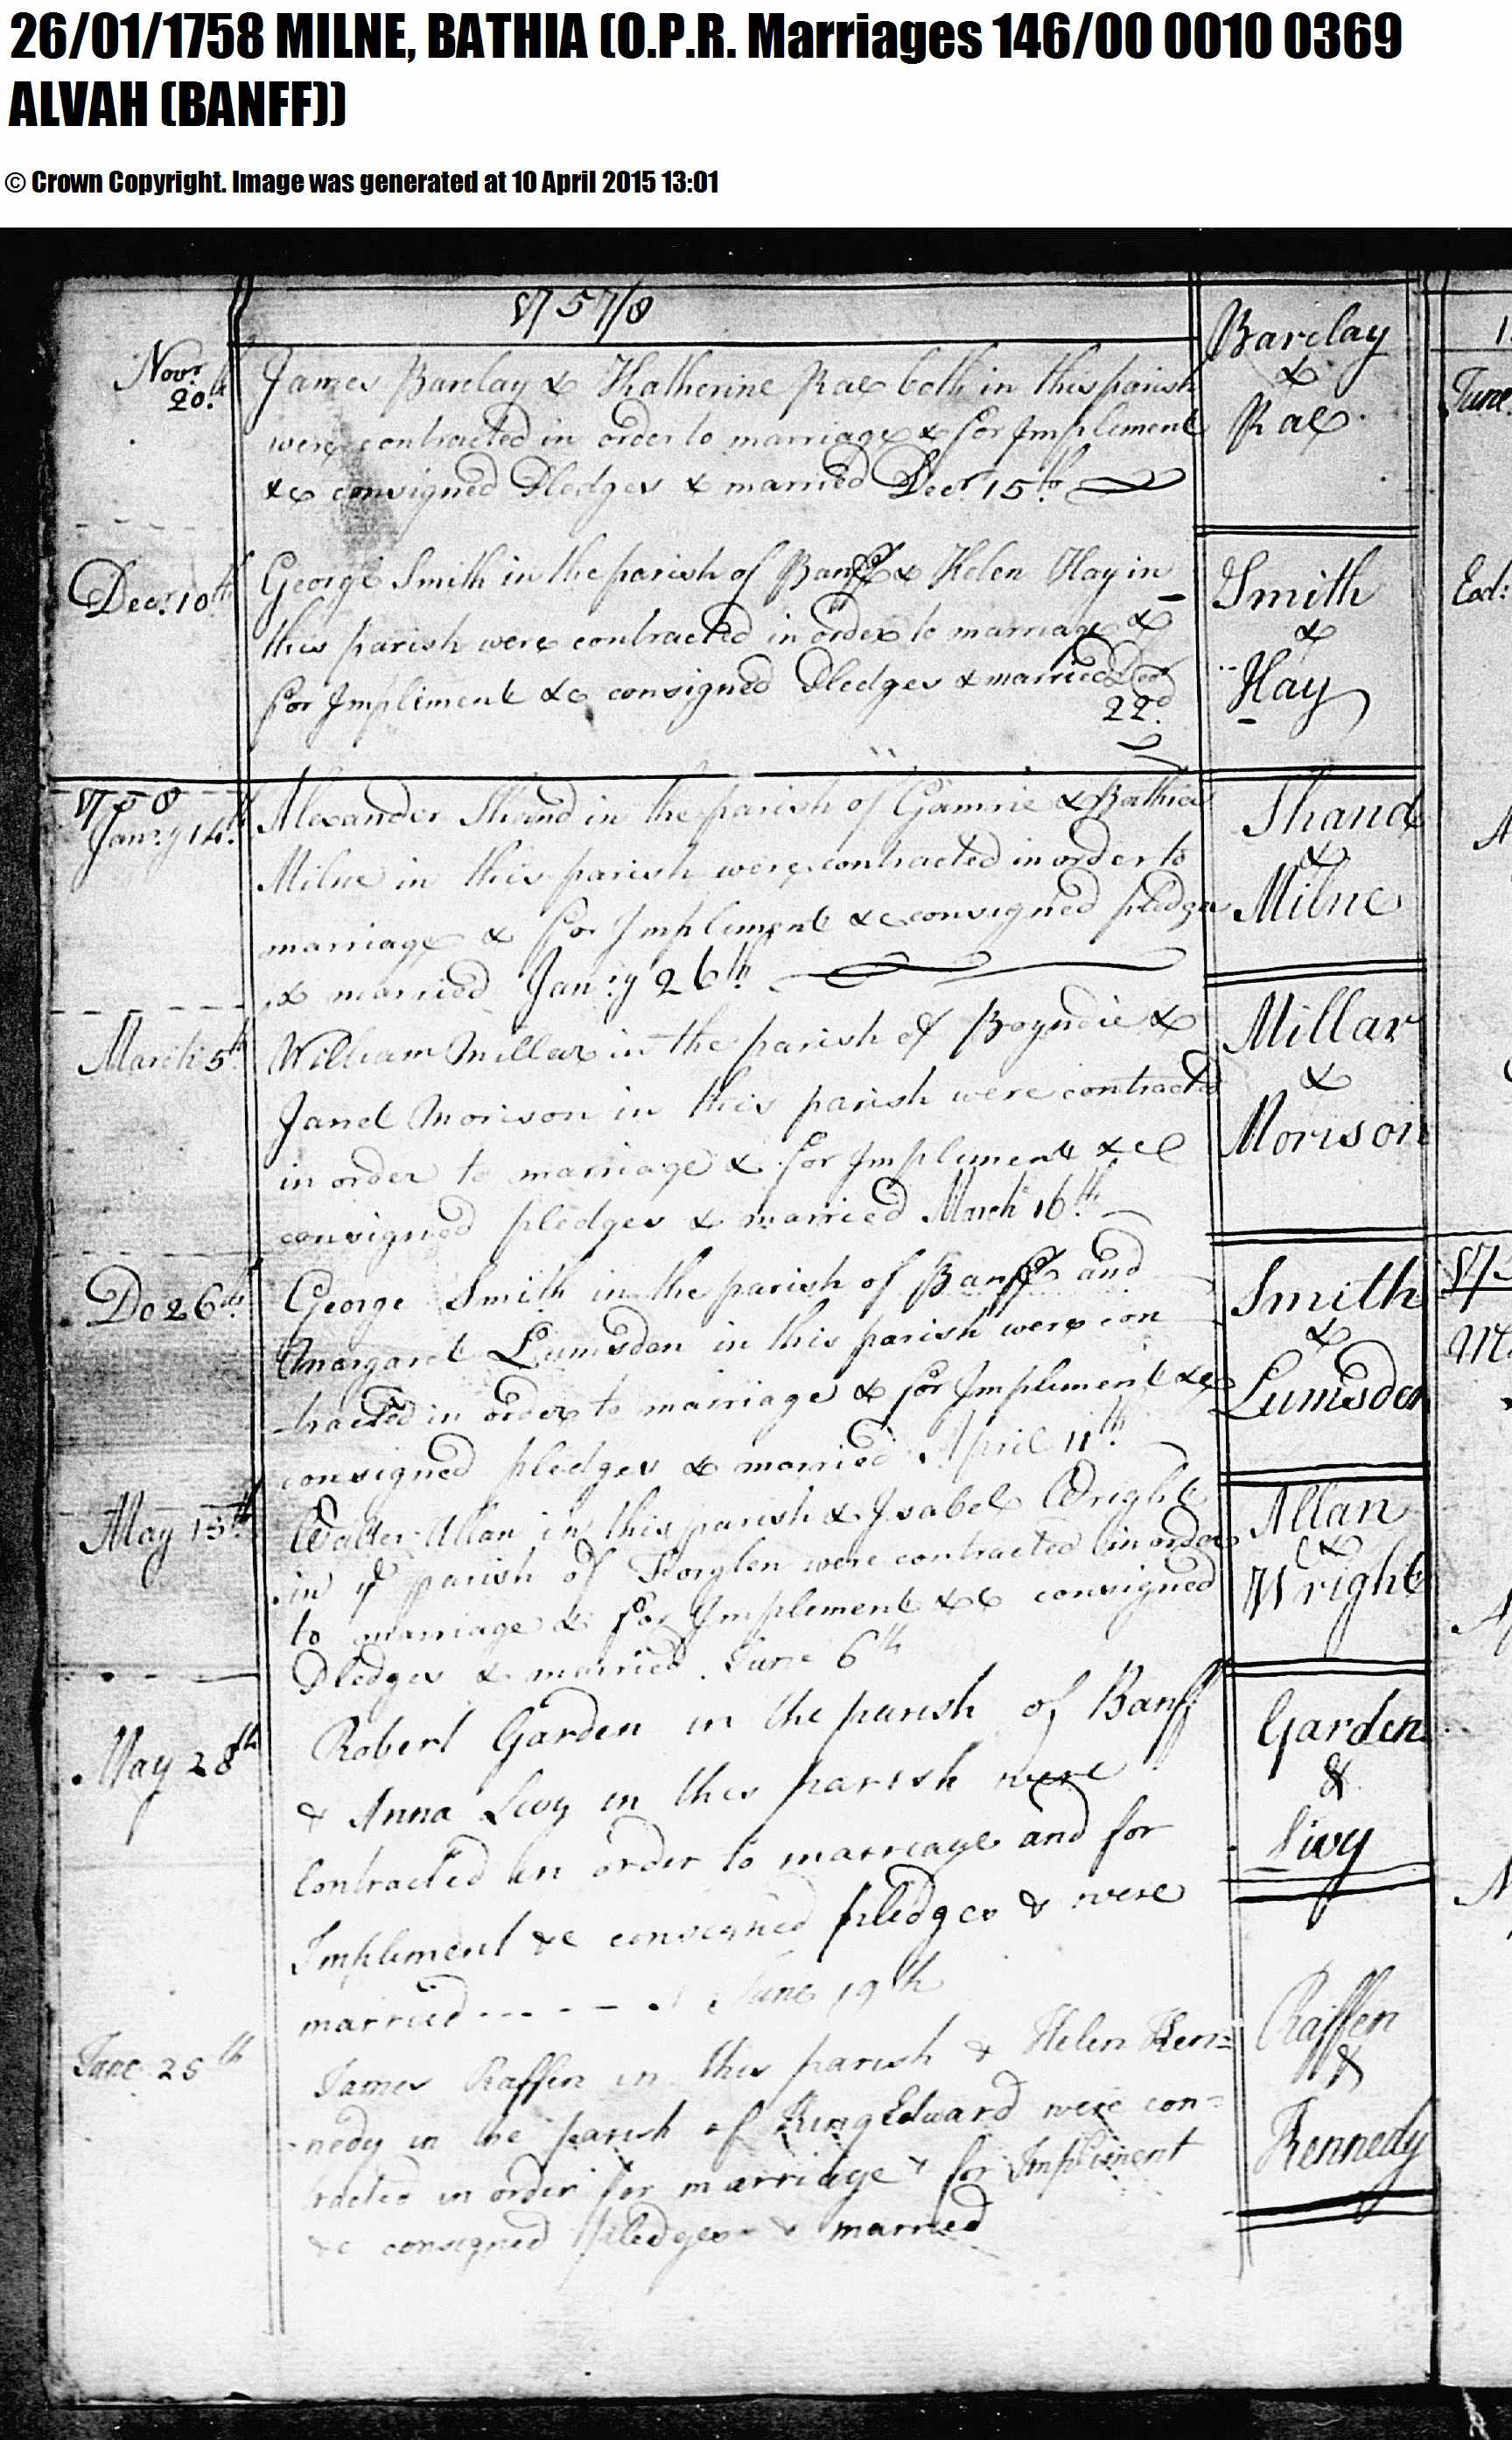 26/01/1758 MILNE, BATHIA (O.P.R. Marriages 146/00 0010 0369
ALVAH (BANFF))
© Crown Copyright. Image was generated at 10 April 2015 13:01
1757/8
Novr. 20th
James Barclay & Katherine Rae both in this parish
were contracted in order to marriage & for Implement
&c consigned Pledges & married Decr. 15th
Barclay
&
Rae
Decr. 10th
George Smith in the parish of Banff & Helen Hay in
this parish were contracted in order to marriage &
for Impliment &c consigned Pledges & married Decr
22d
Smith
&
Hay
1758
Janry 14th
Alexander Shand in the parish of Gamrie & Bathia
Milne in this parish were contracted in order to
marriage & for Impliment &c consigned pledges
& married Janry 26th
Shand
&
Milne
March 5th
William Millar in the parish of Boyndie &
Janet Morison in this parish were contracted
in order to marriage & for Impliment &c
consigned pledges & married March 16th
Millar
&
Morison
Do 26th
George Smith in the parish of Banff and
Margaret Lumsden in this parish were con
tracted in order to marriage & for Impliment &c
consigned pledges & married April 11th
Smith
&
Lumsden
May 15th
Walter Allan in this parish & Isabel Wright
in ye parish of Forglen were contracted in order
to marriage & for Implement &c consigned
Pledges & married June 6th
Allan
&
Wright
May 28th
Robert Garden in the parish of Banff
& Anna Livy in this parish were
contracted in order to marriage and for
Impliment &c consigned pledges & were
married - - - - June 19th
Garden
&
Livy
June 25th
James Raffen in this parish & Helen Ken=
-nedy in the parish of King Edward were con=
tracted in order for marriage & for Impliment
&c consigned Pledges & married
Raffen
&
Kennedy
June